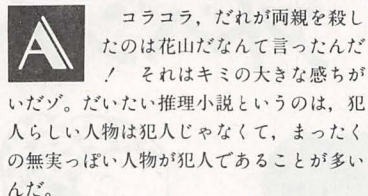 A
コラコラ，だれが両親を殺し
たのは花山だなんて言ったんだ
！　それはキミの大きな感ちが
いだゾ。だいたい推理小説というのは，犯
人らしい人物は犯人じゃなくて，まったく
の無実っぽい人物が犯人であることが多い
んだ。